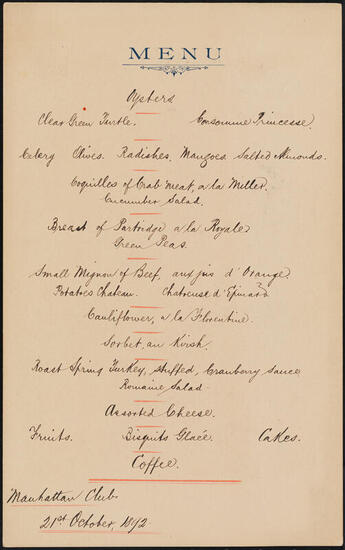 MENU
Oysters
Clear Green Turtle. Consomme Princesse.
Celery Olives. Radishes. Mangoes Salted Almonds.
Coquilles of Crab meat, a la Miller.
Cucumber Salad.
Breast of Partridge a la Royale
Green Peas.
Small Mignon of Beef, aux jus d'Orange
Potatoes Chateau. Chatreuse d'Epinard
Cauliflower, a la Florentine.
Sorbet, au Kirsh.
Roast Spring Turkey, stuffed, Cranberry Sauce
Romaine Salad.
Assorted Cheese.
Fruits. Bisquits Glacée. Cakes.
Coffee.
Manhattan Club
21st October, 1892.